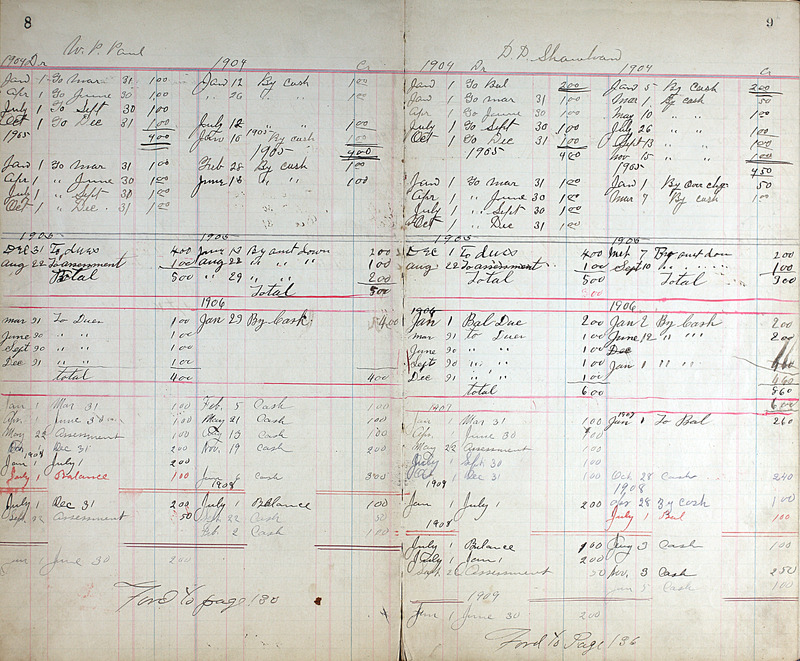 8
W. P. Paul
1904 Dr 1904 Cr
Jan 1 To Mar 31 1.00 Jan 12 By cash 1.00
Apr 1 To June 30 1.00 " 26 " " 1.00
July 1 To Sept 30 1.00
Oct 1 To Dec 31 1.00 July 12 " " 1.00
1905 4.00 Jan 10 1905 By cash 1.00
1905 4.00
Jan 1 To Mar 31 1.00 Feb 28 By cash 1.00
Apr 1 " June 30 1.00 June 13 " " 1.00
July 1 " Sept 30 1.00
Oct 1 " Dec 31 1.00
1905 1905
Dec 31 To dues 400 June 13 By amt down 200
Aug 22 To assessment 100 Aug 22 " " " 100
Total 500 " 29 " " 200
Total 500
1906
Mar 31 To Dues 100 Jan 29 By Cash 400
June 30 " " 100
Sept 30 " " 100
Dec 31 " " 100
total 400 400
Jan 1 Mar 31 100 Feb. 5 Cash 100
Apr. 1 June 30 100 May 21 Cash 100
May 22 Assessment 100 13 Cash 100
Dec 31 100 Nov. 19 Cash 200
1908
Jan 1 July 1 200
July 1 Balance 100 Jan 6 Cash 300
1908
July 1 Dec 31 200 July 1 Balance 100
Sept. 22 Assessment 50 22 Cash 50
Feb 2 Cash 100
Jan 1 June 30 200
Ford to page 130
9
D. D. Shawhan
1904 Dr 1904 Cr
Jan 1 To Bal 200 Jan 5 By Cash 200
Jan 1 To Mar 31 1.00 Mar 1 By cash 50
Apr 1 To June 30 1.00 May 10 " " 1.00
July 1 To Sept 30 1.00 July 26 " " 1.00
Oct 1 To Dec 31 1.00 Sept 13 " "
1905 Nov 15 " " 1.00
1905 450
Jan 1 To Mar 31 1.00 Jan 1 By over chge 50
Apr 1 " June 30 1.00 Mar 7 By Cash 1.00
July 1 " Sept 30 1.00
Oct 1 " Dec 31 1.00
1905 1905
Dec 1 To dues 400 7 By amt down 200
Aug 22 To assessment 100 Sept 10 " " 100
Total 500 Total 300
1906 1906
Jan 1 Bal Due 200 Jan 2 By Cash 200
Mar 31 to Dues 100 June 12 " " " 200
June 30 " " 100 Dec
Sept 30 " " 100 Jan 1 " " "
Dec 31 " " 100 460
total 600 860
600
1907 1907
Jan 1 Mar 31 100 Jan 1 To Bal 260
Apr. 1 June 30 100
May 22 Assessment 100
July 1 Sept. 30 100
Oct 1 Dec 31 100 Oct 28 Cash 240
1908 1908
Jan 1 July 1 200 Apr 28 By cash 100
1908 July 1 Bal 100
July 1 Balance 100 Aug 3 Cash 100
July 1 Jan 1 200
Sept. 22 Assessment 50 Nov. 3 Cash 250
Jan 5 Cash 100
1909
Jan 1 June 30 200
Ford to Page 136